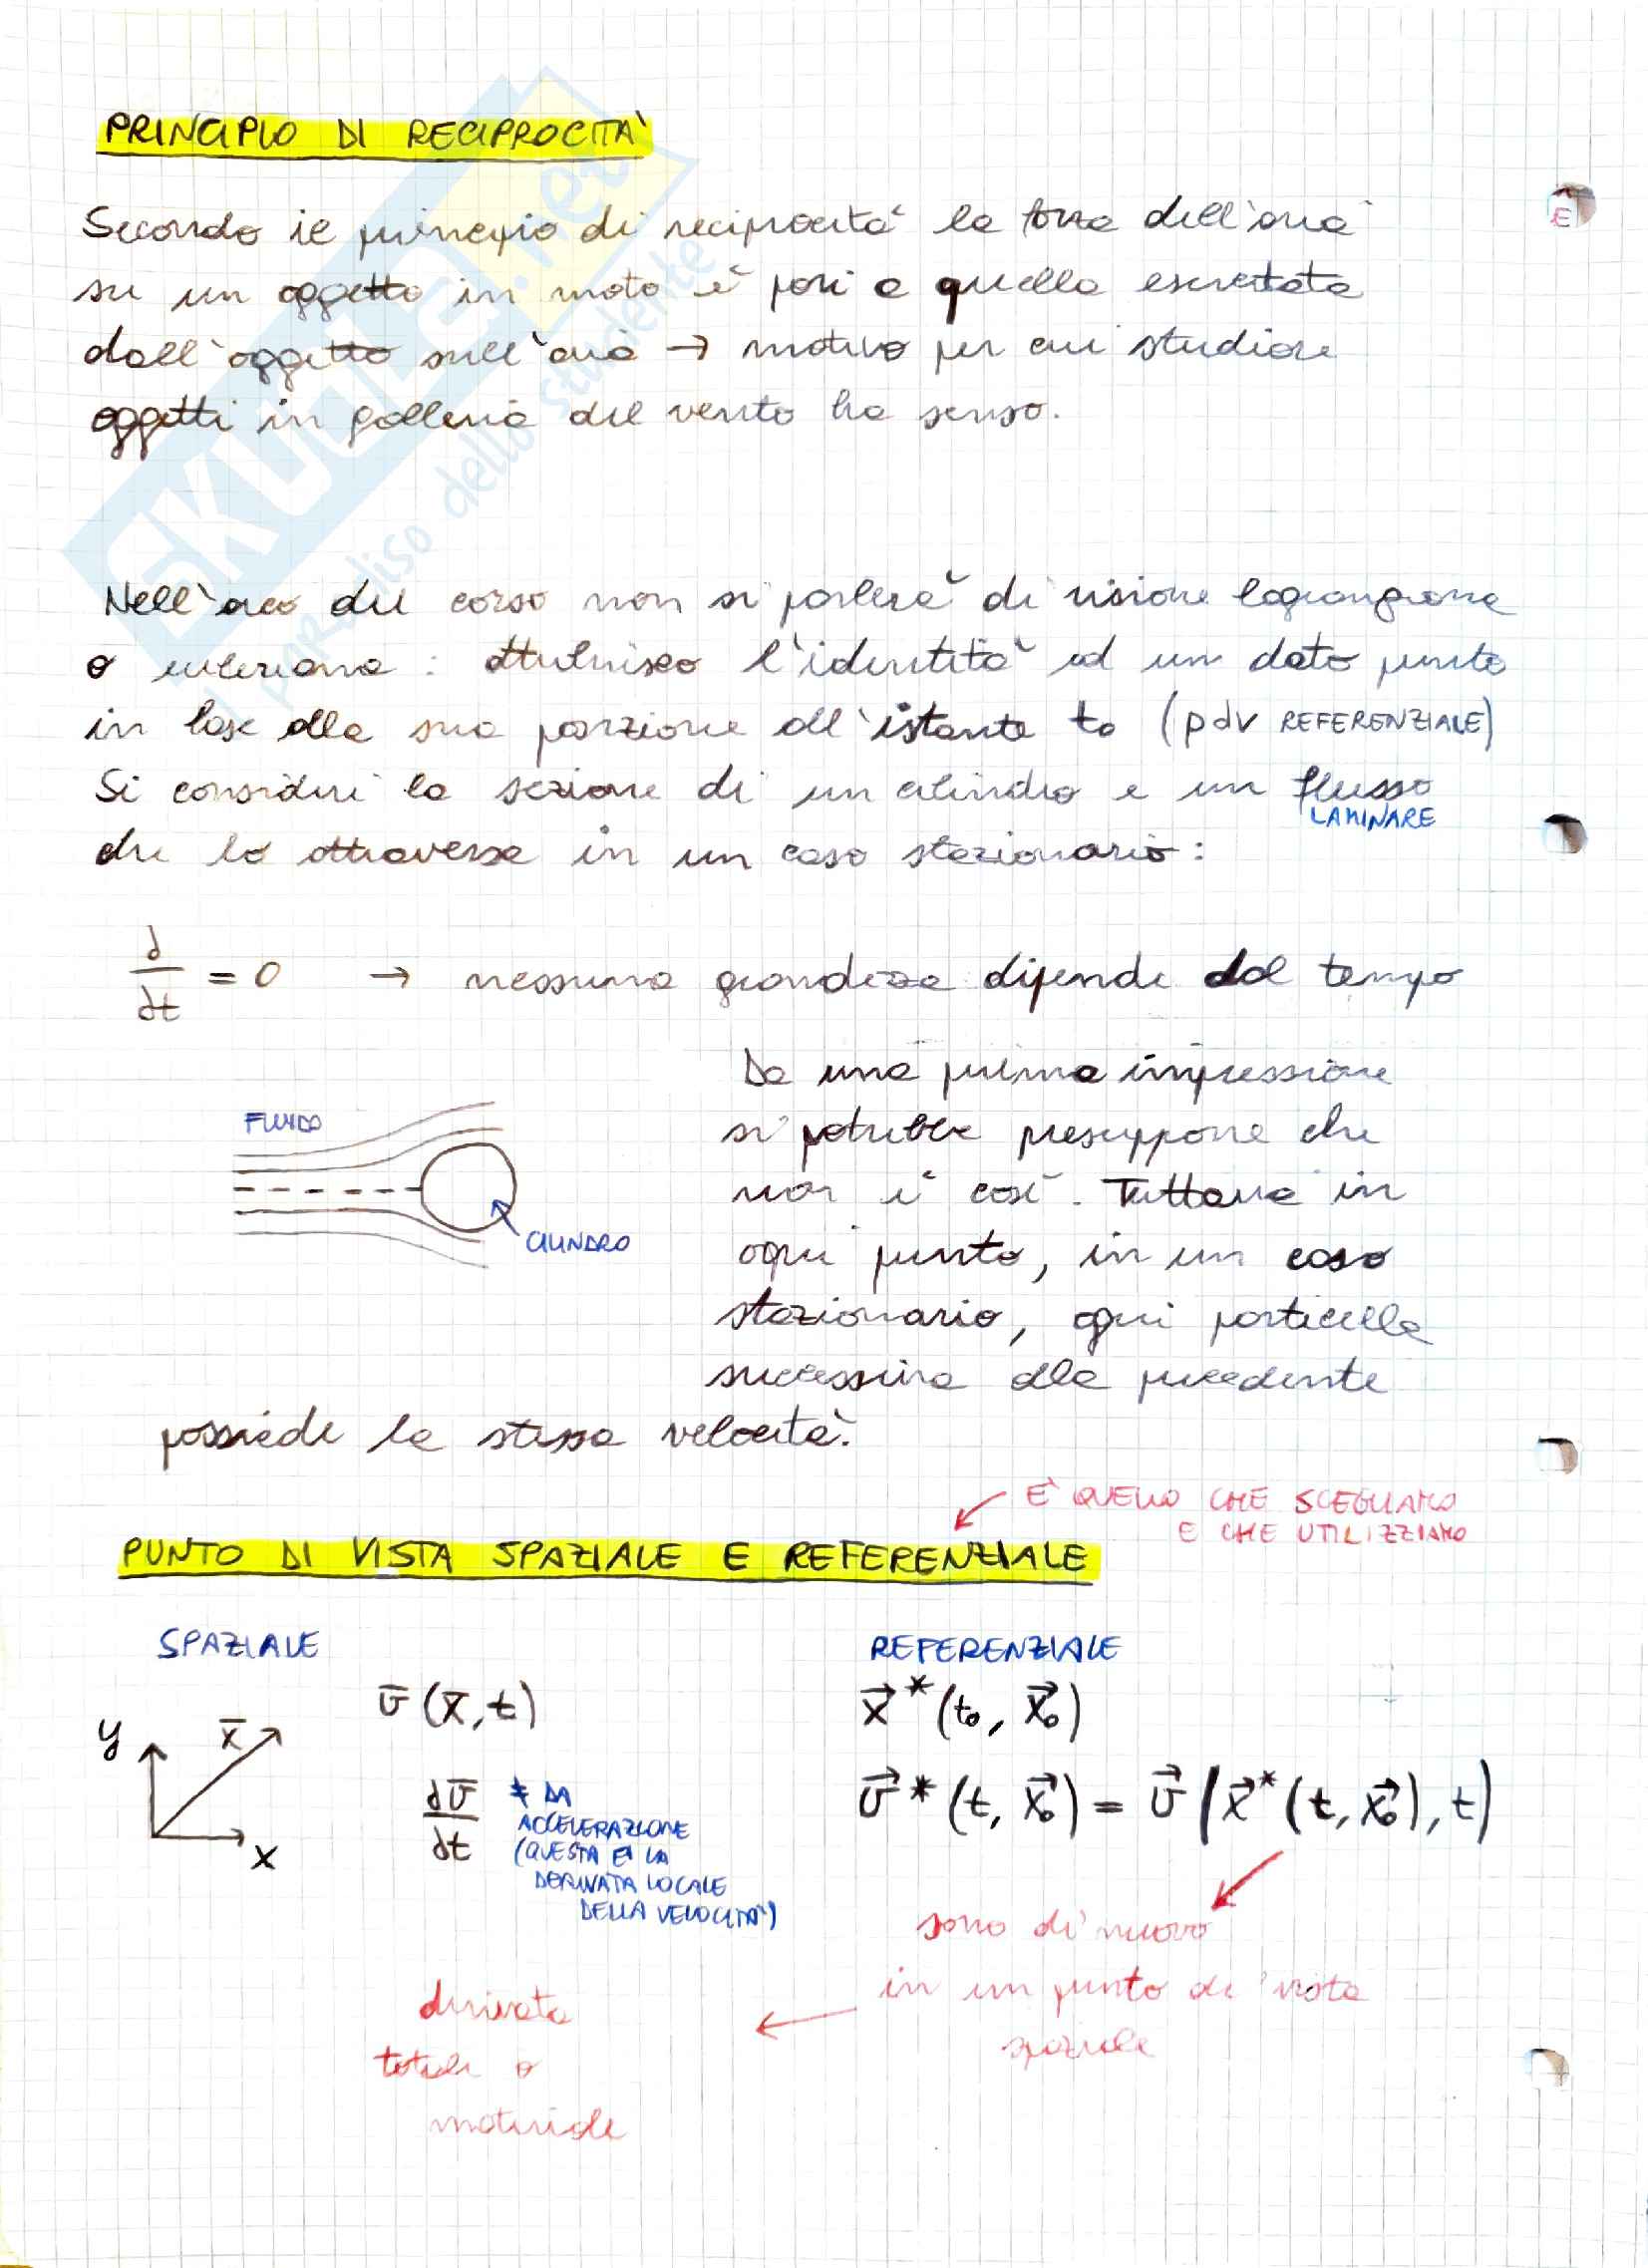 PRINCIPIO DI RECIPROCITA'
Secondo il principio di reciprocità la forza dell'aria
su un oggetto in moto è pari a quella esercitata
dall'oggetto sull'aria → motivo per cui studiare
oggetti in galleria del vento ha senso.
Nell'arco del corso non si parlerà di visione lagrangiana
o euleriana: attribuisco l'identità ad un dato punto
in base alla sua posizione all'istante t₀ (pdv REFERENZIALE)
Si consideri la sezione di un cilindro e un flusso
LAMINARE
che lo attraversa in un caso stazionario:
∂/∂t = 0 → nessuna grandezza dipende dal tempo
Da una prima impressione
si potrebbe presuppone che
non è così. Tuttavia in
ogni punto, in un caso
stazionario, ogni particella
successiva alla precedente
possiede la stessa velocità.
FLUIDO
CILINDRO
E' QUELLO CHE SCEGLIAMO
E CHE UTILIZZIAMO
PUNTO DI VISTA SPAZIALE E REFERENZIALE
SPAZIALE
y
x̄
x
v̄(x̄,t)
∂v̄/∂t ≠ DA
ACCELERAZIONE
(QUESTA E' LA
DERIVATA LOCALE
DELLA VELOCITA')
REFERENZIALE
x⃗*(t₀, x⃗₀)
v⃗*(t, x⃗₀) = v⃗(x⃗*(t, x⃗₀), t)
sono di nuovo
in un punto di vista
spaziale
derivata
totale o
materiale
SKUOLA.net
il paradiso dello studente